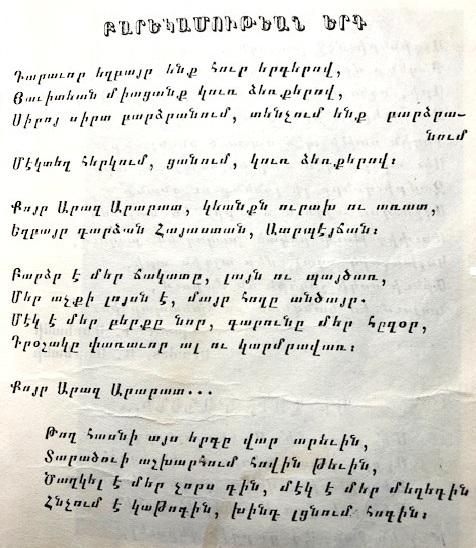 ԲԱՐԵԿԱՄՈՒԹԵԱՆ ԵՐԳ
Դարաւոր եղբայր ենք հուր երգերով,
Յաւիտեան միացանք կուռ ձեռքերով,
Սիրոյ սիրտ բարձրանում, տենչում ենք բարձրա-
նում
Մէկտեղ հերկում, ցանում, կուռ ձեռքերով։
Քոյր Արազ Արարատ, կեանքն ուրախ ու առատ,
Եղբայր դարձան Հայաստան, Ատրպէյճան։
Բարձր է մեր ճակատը, լայն ու պայծառ,
Մեր աչքի լոյսն է, մայր հողը անծայր.
Մէկ է մեր բերքը նոր, գարունը մեր հըզօր,
Դրօշակը փառաւոր ալ ու կարմրավառ։
Քոյր Արազ Արարատ...
Թող հասնի այս երգը վար արեւին,
Տարածուի աշխարհում հովին թեւին,
Ծաղկել է մեր չորս դին, մէկ է մեր մեղեդին
Հնչում է կաթոգին, խինդ լցնում հոգին։